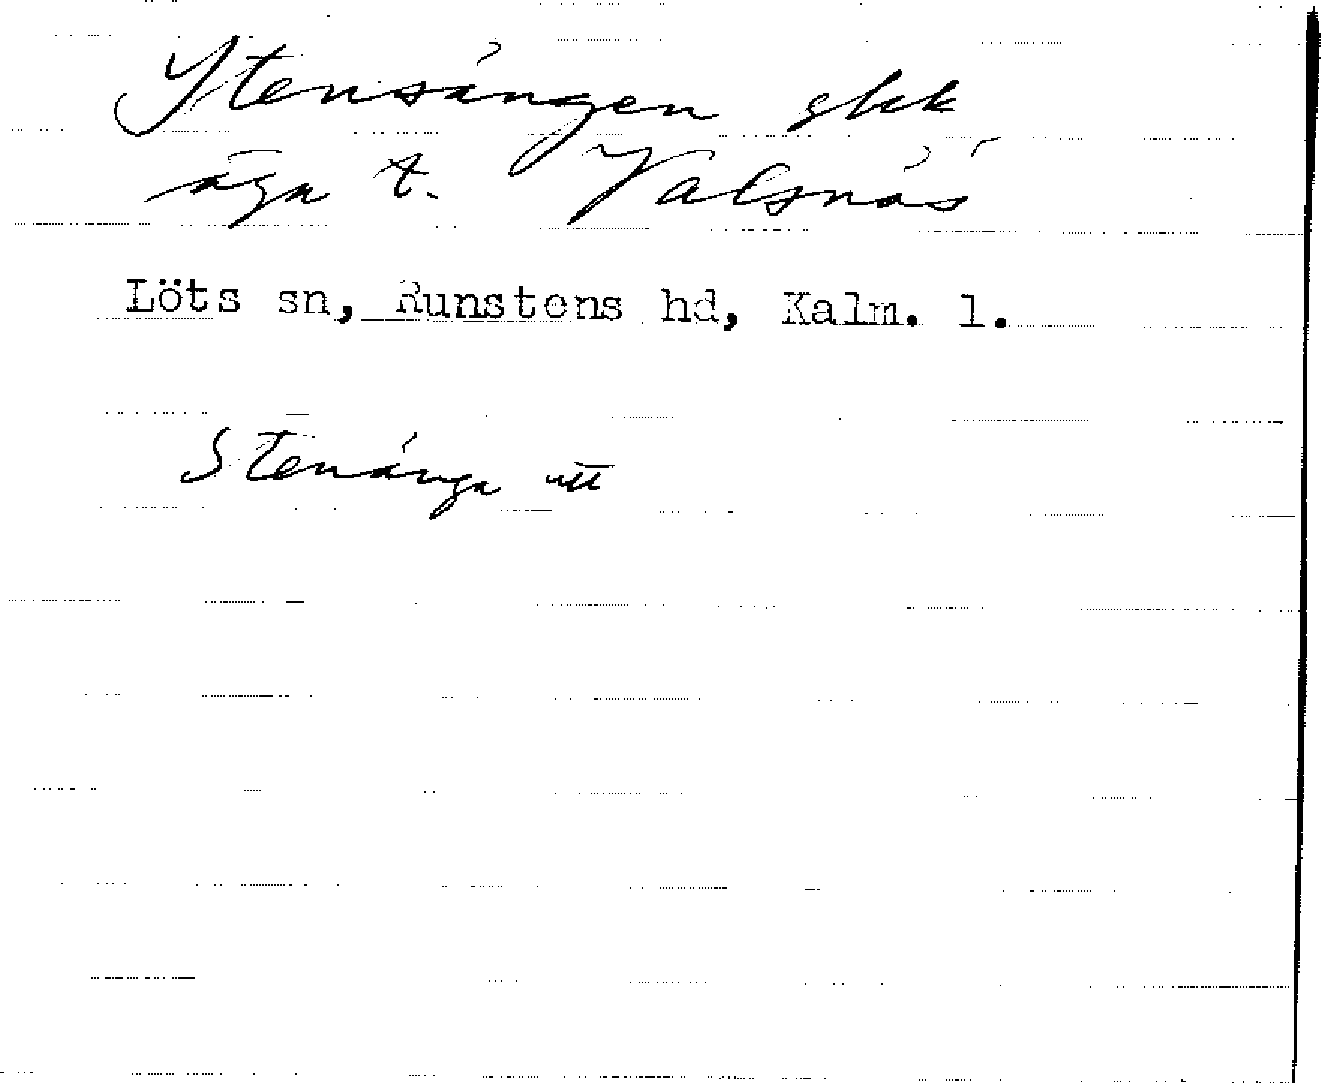 Stensängen
äga t. Valsnäs
Löts sn, Runstens hd, Kalm. l.
Stenänga utt